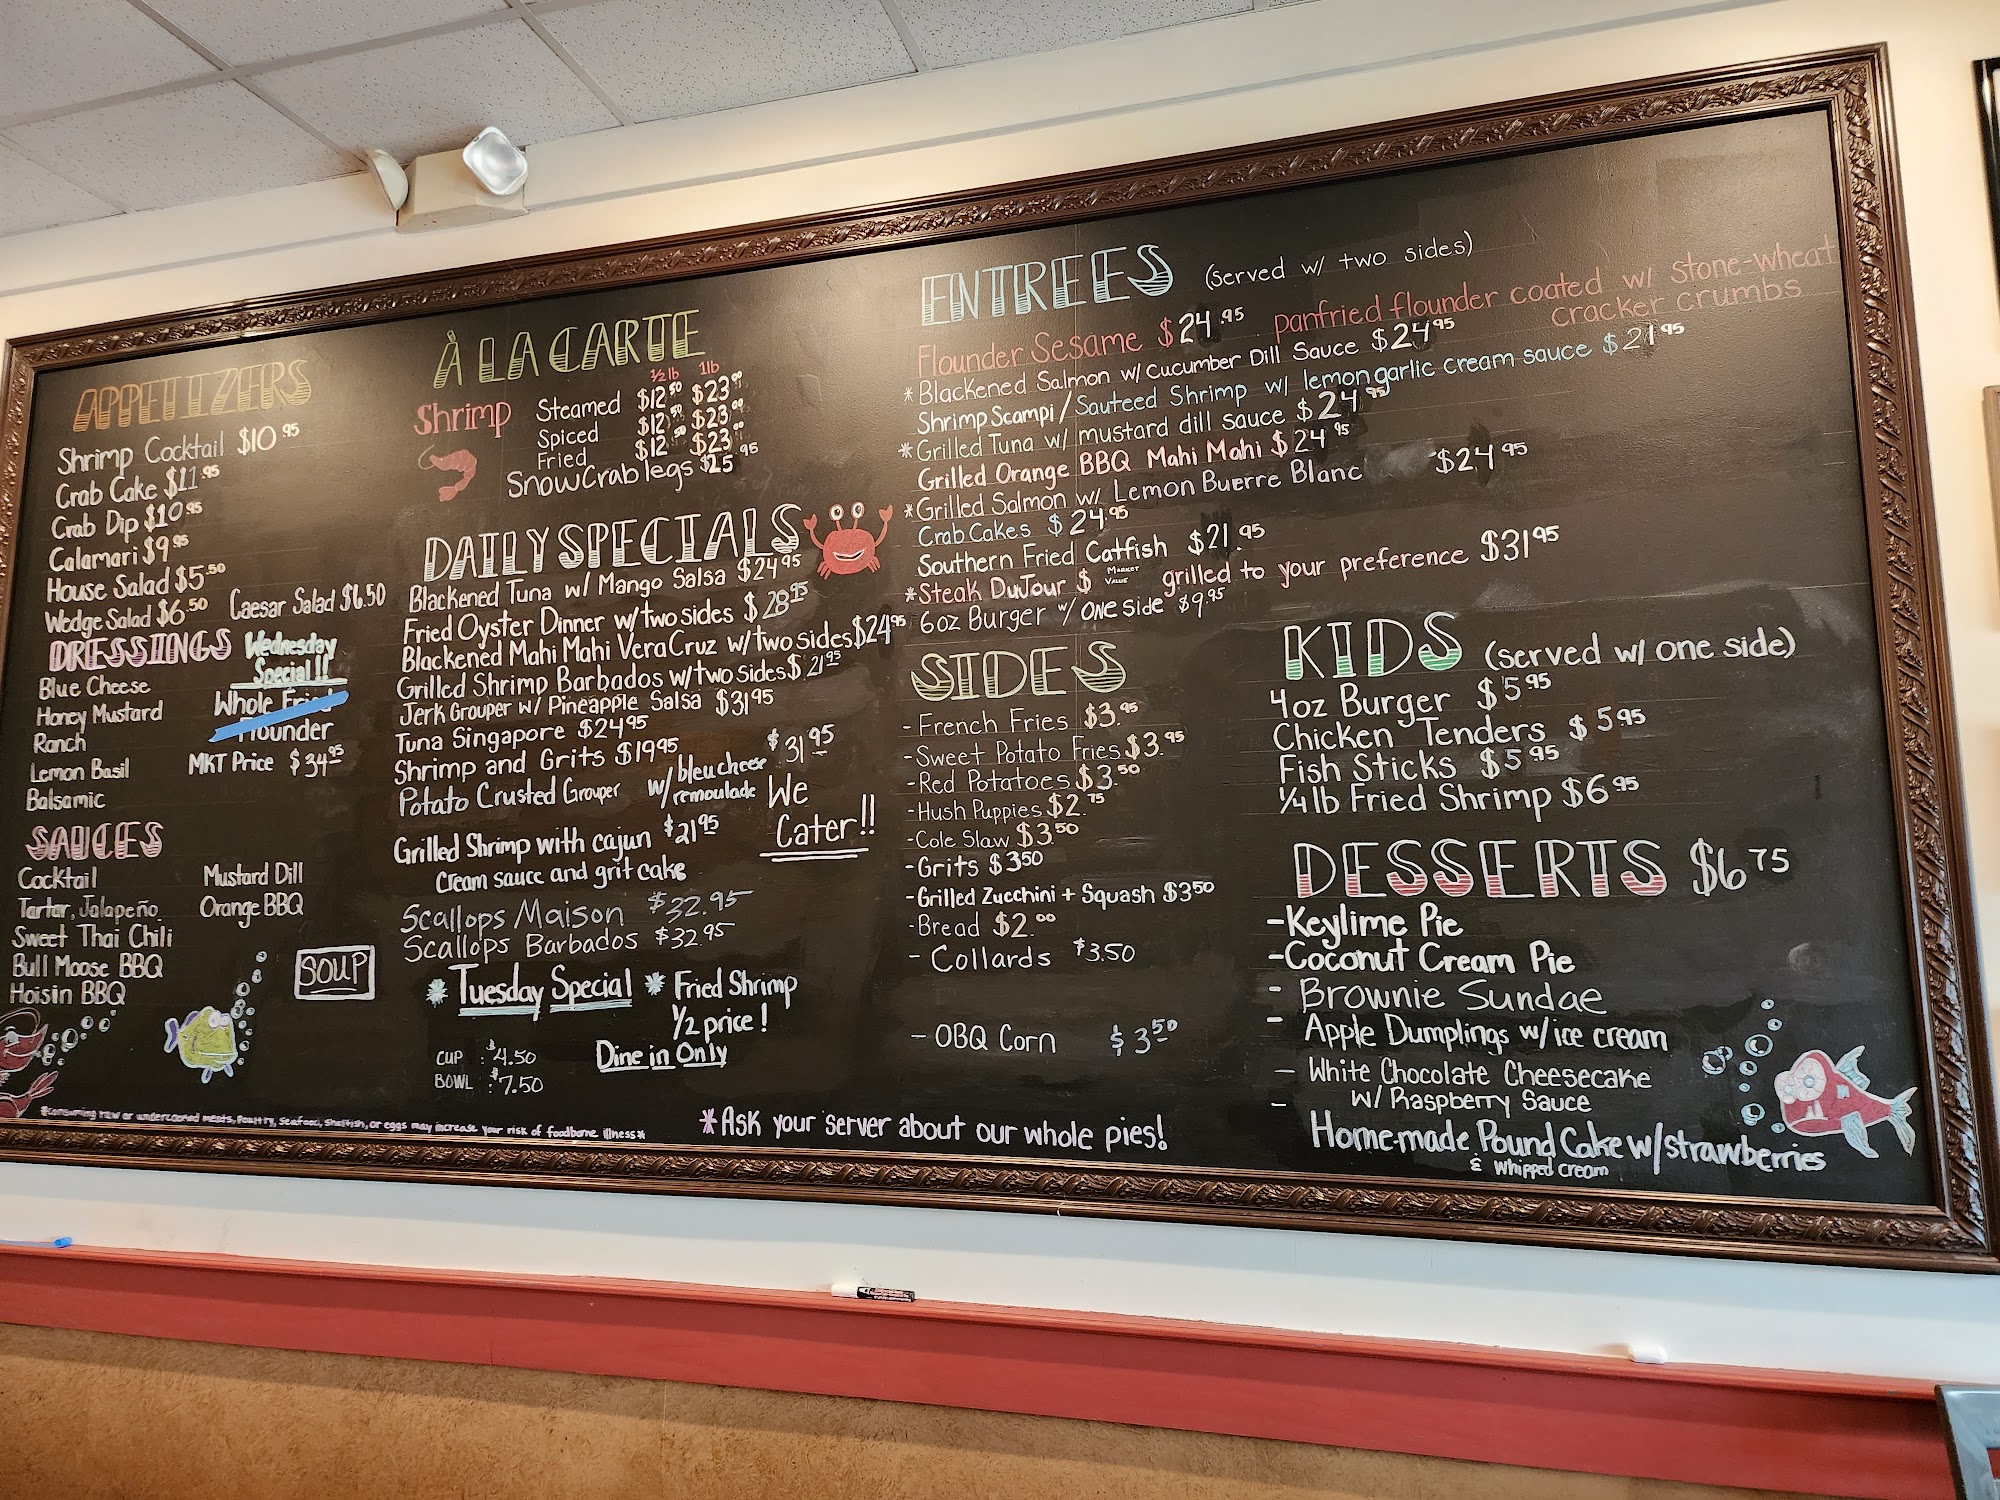 APPETIZERS
Shrimp Cocktail $10.95
Crab Cake $11.95
Crab Dip $10.95
Calamari $9.95
House Salad $5.50
Wedge Salad $6.50 Caesar Salad $6.50
DRESSINGS
Blue Cheese
Honey Mustard
Ranch
Lemon Basil
Balsamic
Wednesday
Special!!
Whole Fried
Flounder
MKT Price $34.95
SAUCES
Cocktail
Tartar, Jalapeño
Sweet Thai Chili
Bull Moose BBQ
Hoisin BBQ
Mustard Dill
Orange BBQ
SOUP
CUP : $4.50
BOWL : $7.50
À LA CARTE
½ lb 1lb
Shrimp Steamed $12.50 $23.00
Spiced $12.50 $23.00
Fried $12.50 $23.00
Snow Crab legs $25.95
DAILY SPECIALS
Blackened Tuna w/ Mango Salsa $24.95
Fried Oyster Dinner w/ two sides $28.95
Blackened Mahi Mahi Vera Cruz w/ two sides $24.95
Grilled Shrimp Barbados w/ two sides $21.95
Jerk Grouper w/ Pineapple Salsa $31.95
Tuna Singapore $24.95
Shrimp and Grits $19.95
Potato Crusted Grouper w/ bleu cheese $31.95
w/ remoulade
Grilled Shrimp with cajun $21.95
cream sauce and grit cake
We
Cater!!
Scallops Maison $32.95
Scallops Barbados $32.95
* Tuesday Special * Fried Shrimp
½ price!
Dine in Only
ENTREES (served w/ two sides)
Flounder Sesame $24.95 panfried flounder coated w/ stone-wheat
cracker crumbs
*Blackened Salmon w/ Cucumber Dill Sauce $24.95
Shrimp Scampi / Sauteed Shrimp w/ lemon garlic cream sauce $21.95
*Grilled Tuna w/ mustard dill sauce $24.95
Grilled Orange BBQ Mahi Mahi $24.95
*Grilled Salmon w/ Lemon Buerre Blanc $24.95
Crab Cakes $24.95
Southern Fried Catfish $21.95
*Steak DuJour $ MARKET VALUE grilled to your preference $31.95
6oz Burger w/ one side $9.95
SIDES
- French Fries $3.95
- Sweet Potato Fries $3.95
- Red Potatoes $3.50
- Hush Puppies $2.75
- Cole Slaw $3.50
- Grits $3.50
- Grilled Zucchini + Squash $3.50
- Bread $2.00
- Collards $3.50
- OBQ Corn $3.50
KIDS (served w/ one side)
4oz Burger $5.95
Chicken Tenders $5.95
Fish Sticks $5.95
¼ lb Fried Shrimp $6.95
DESSERTS $6.75
- Keylime Pie
- Coconut Cream Pie
- Brownie Sundae
- Apple Dumplings w/ ice cream
- White Chocolate Cheesecake
w/ Raspberry Sauce
- Home-made Pound Cake w/ strawberries
& whipped cream
*Consuming raw or undercooked meats, Poultry, Seafood, Shellfish, or eggs may increase your risk of foodborne illness*
*Ask your server about our whole pies!